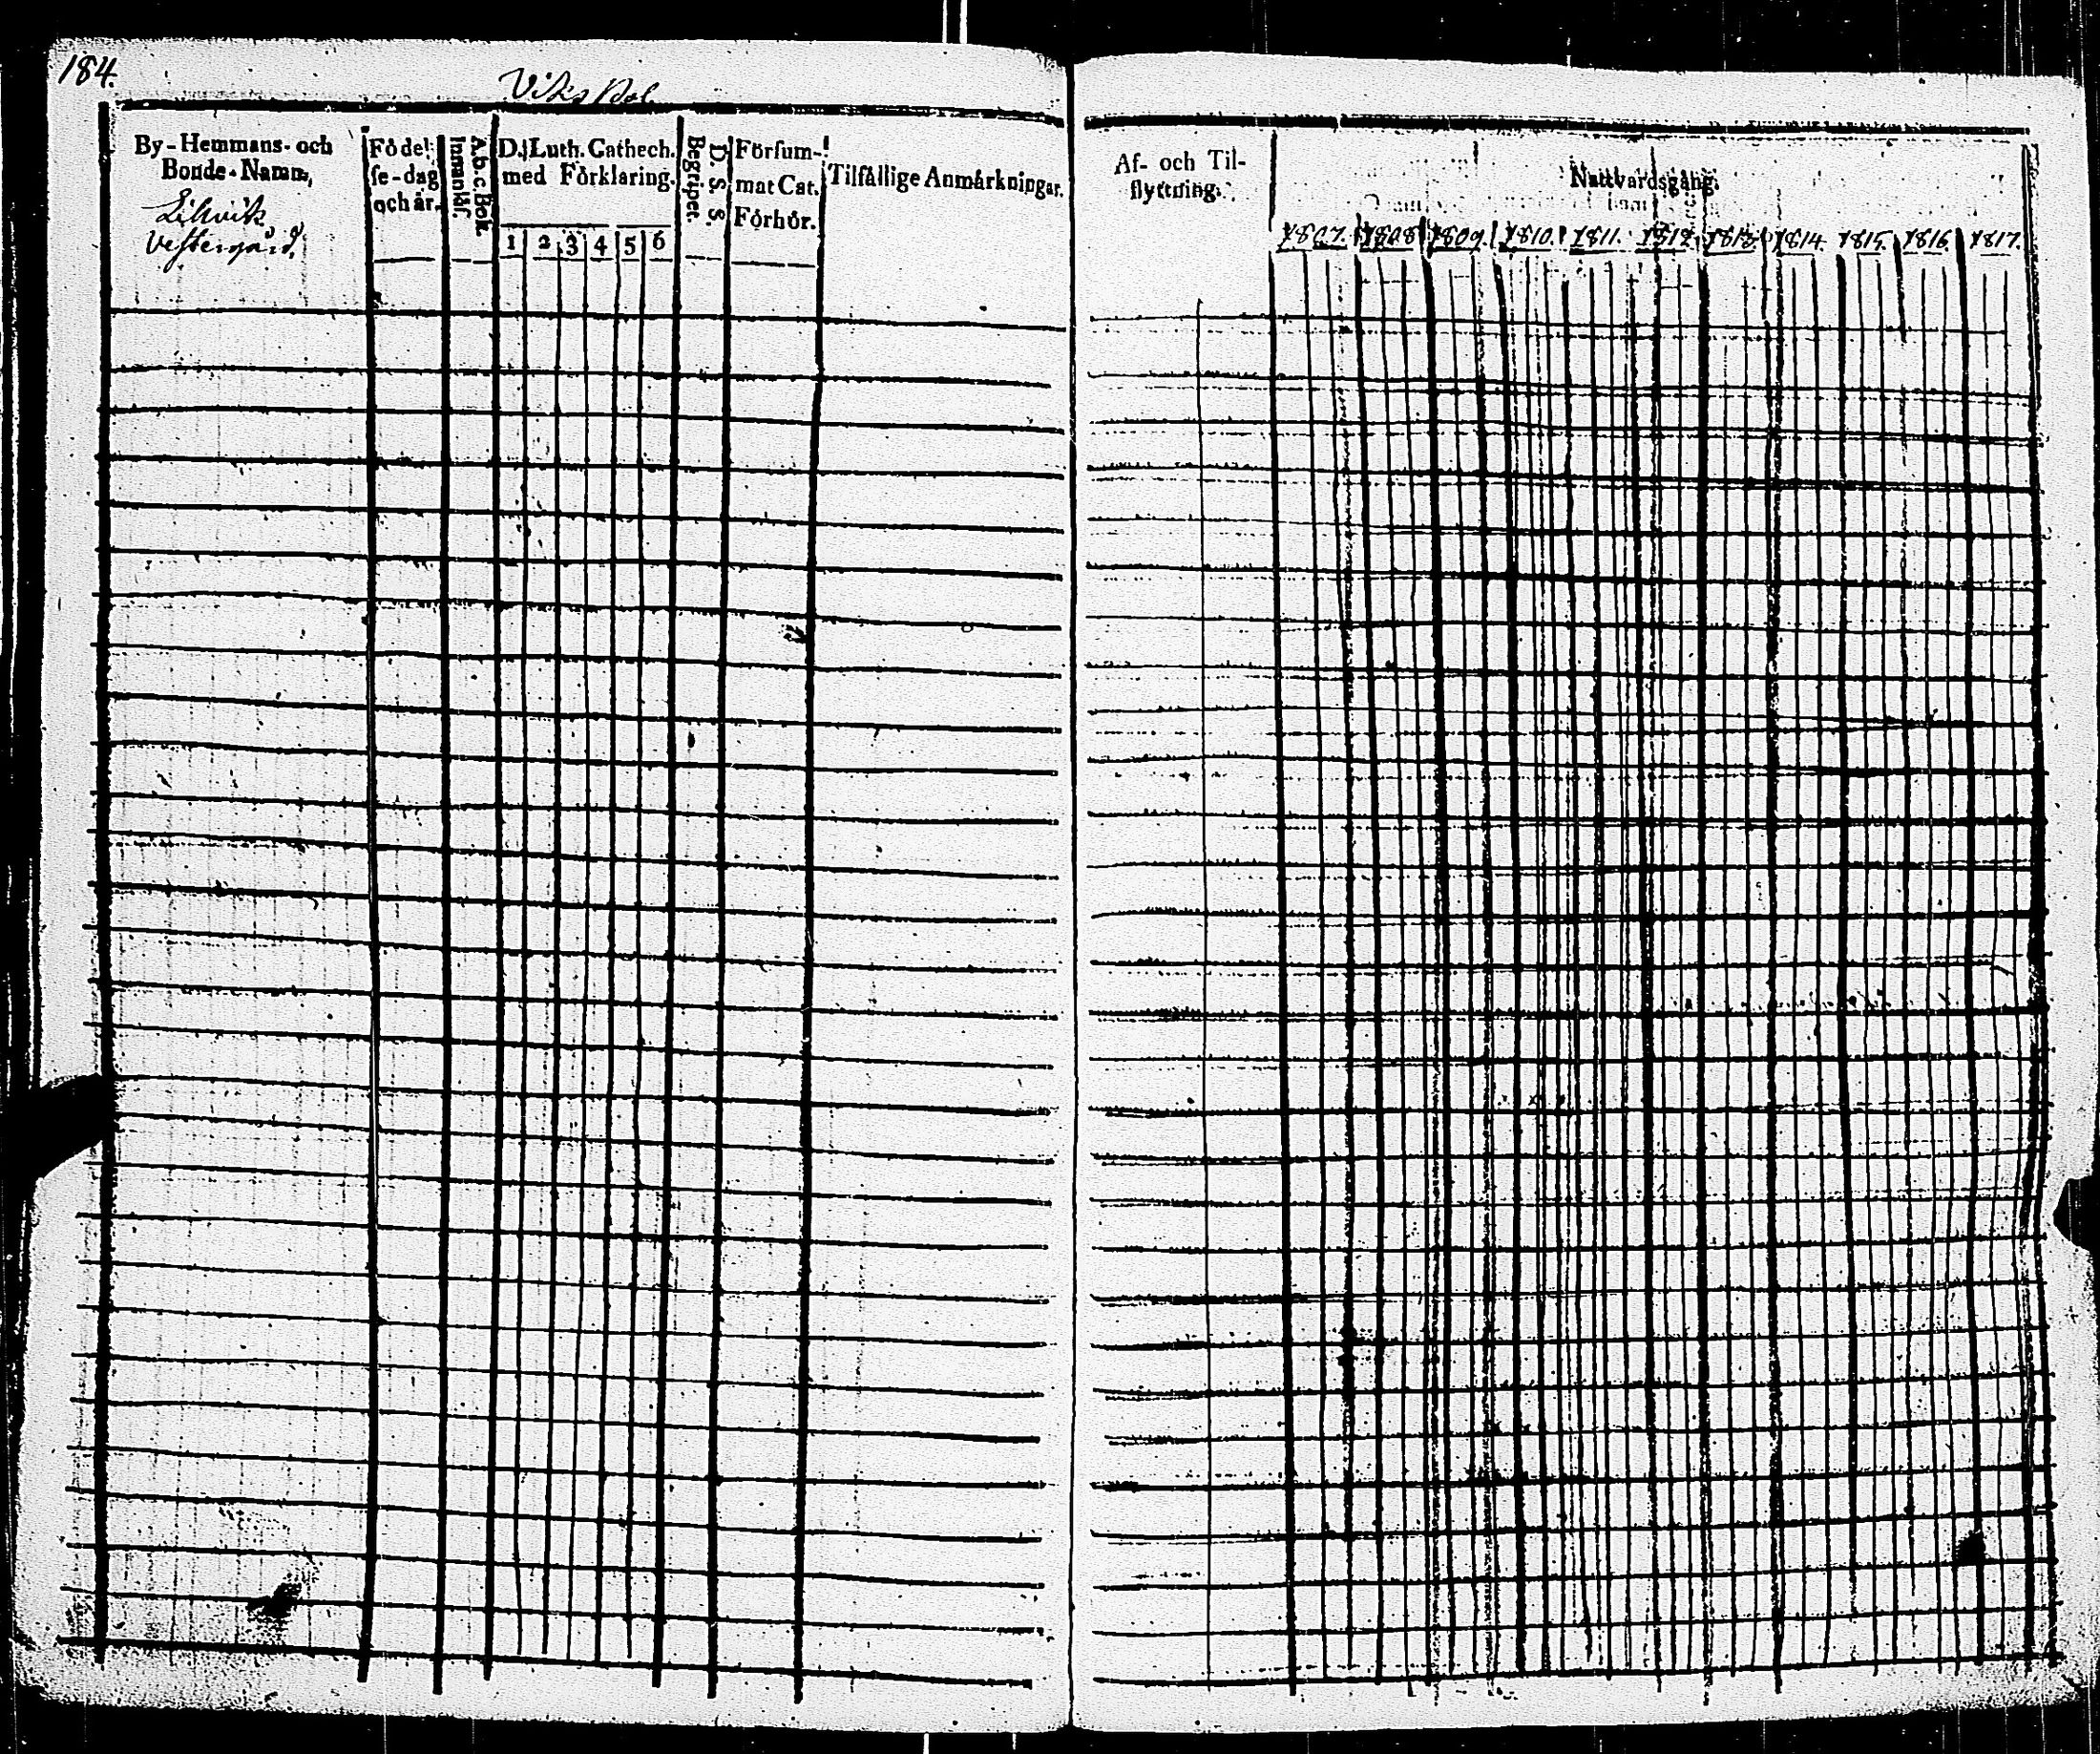 184.
Viks Bol.
By-Hemmans- och
Bonde-Namn,
Vestergård,
Födel-
se-dag
och år.
A.b.c. Bok.
Innanläs.
D. Luth. Cathech.
med Förklaring.
1 2 3 4 5 6
D. S. S.
Begripet.
Försum-
mat Cat.
Förhör.
Tilfällige Anmärkningar.
Af- och Til-
flyttning.
Nattvardsgång.
1807. 1808 1809. 1810. 1811. 1812 1813 1814. 1815. 1816 1817.